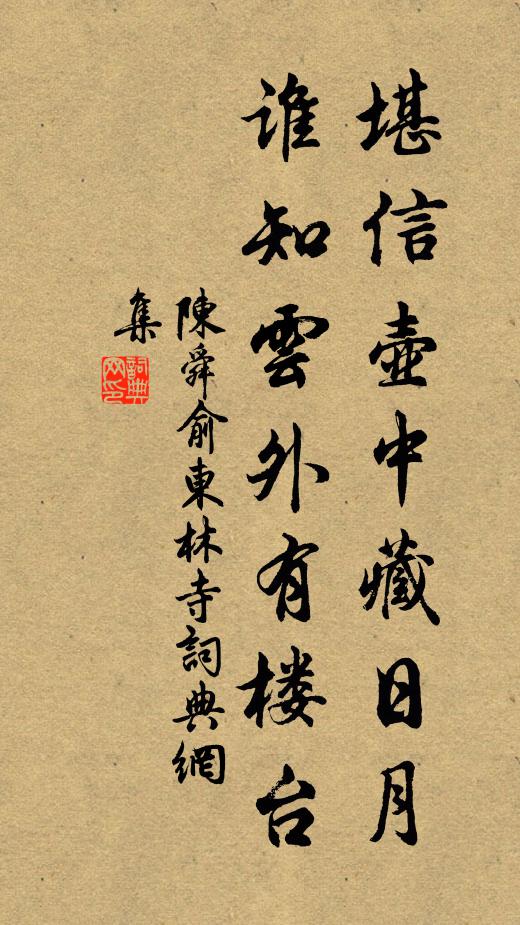 堪信壺中藏日月
谁知雲外有楼台
陳舜俞東林寺詞典網
集
詞典
网印